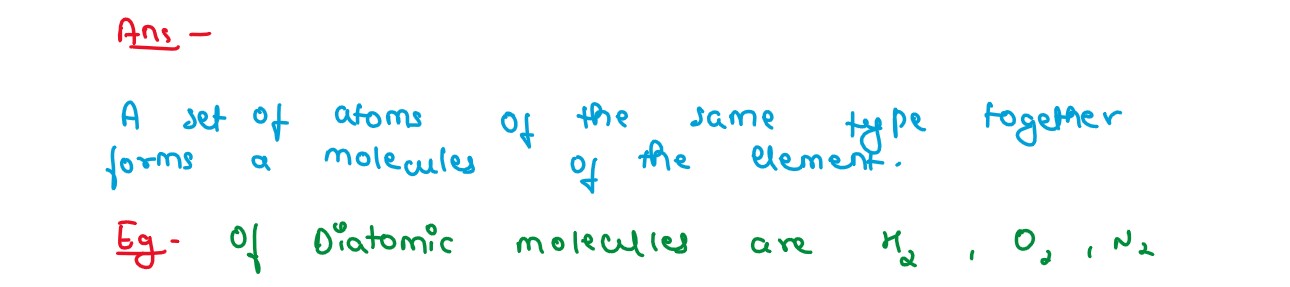 Ans -
A set of atoms of the same type together
forms a molecules of the element.
Eg - Of Diatomic molecules are H₂ , O₂ , N₂